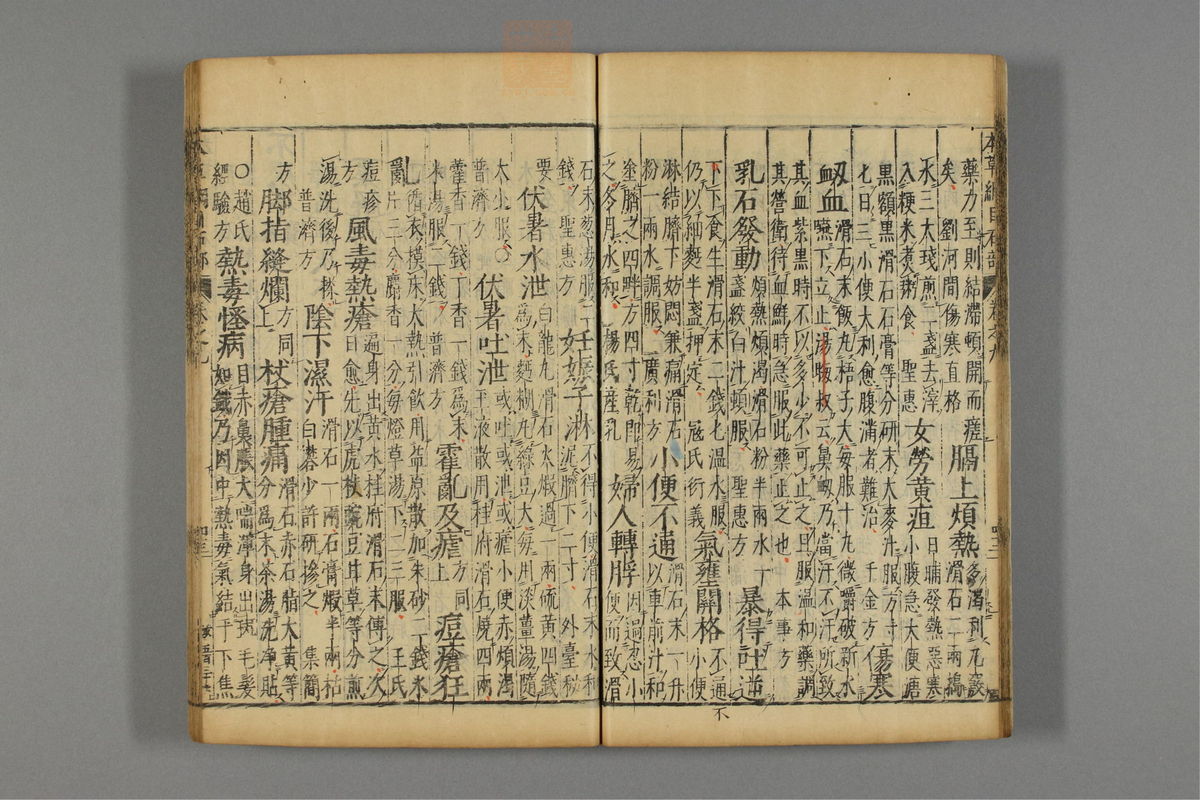 藥力至則結滯頓開而瘥 膈上煩熱 多渴利九竅
矣 劉河間傷寒直格 滑石二兩搗
水三大琖煎二盞去滓 女勞黃疸 日晡發熱惡寒
入粳米煮粥食 聖惠 小腹急大便溏
黑額黑滑石石膏等分研末大麥汁服方寸 傷寒
匕日三小便大利愈腹滿者難治 千金方
衄血 滑石末飯丸梧子大每服十丸微嚼破新水
嚥下立止湯晦叔云鼻衄乃當汗不汗所致
其血紫黑時不以多少不可止之且服溫和藥調
其營衛待血鮮時急服此藥止之也 本事方
乳石發動 煩熱煩渴滑石粉半兩水一 暴得吐逆 不
盞絞白汁頓服 聖惠方
下下食生滑石末二錢匕溫水服 氣壅關格 不通
仍以細麪半盞押定 寇氏衍義 小便
淋結臍下妨悶兼痛滑石 小便不通 滑石末一升
粉一兩水調服 廣利方 以車前汁和
塗臍之四畔方四寸乾即易 婦人轉脬 因過忍小
之冬月水和 楊氏產乳 便而致滑
石末葱湯服二 妊娠子淋 不得小便滑石末水和
錢 聖惠方 泥臍下二寸 外臺秘
要 伏暑水泄 白龍丸滑石火煅過一兩硫黃四錢
為末麪糊丸綠豆大每用淡薑湯隨
大小服 ○ 伏暑吐泄 或吐或泄或瘧小便赤煩渴
普濟方 玉液散用桂府滑石燒四兩
藿香一錢丁香一錢為末 霍亂及瘧 方同 痘瘡狂
米湯服二錢 普濟方 上
亂 循衣摸床大熱引飲用益原散加朱砂二錢氷
片三分麝香一分每燈草湯下二三服 王氏
痘疹 風毒熱瘡 遍身出黃水桂府滑石末傅之次
方 日愈先以虎杖豌豆甘草等分煎
湯洗後乃搽 陰下濕汗 滑石一兩石膏煅半兩枯
普濟方 白礬少許研摻之 集簡
方 脚指縫爛 方同上 杖瘡腫痛 滑石赤石脂大黃等
分為末茶湯洗淨貼
○趙氏 熱毒怪病 目赤鼻脹大喘渾身出斑毛髮
經驗方 如鐵乃因中熱毒氣結于下焦